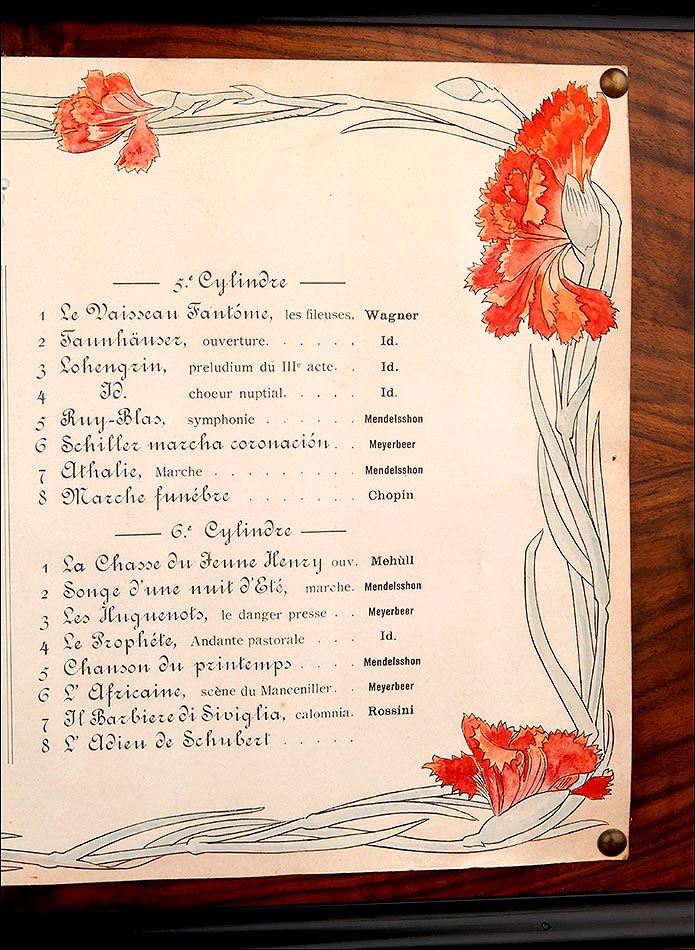 5.e Cylindre
1 Le Vaisseau Fantôme, les fileuses. Wagner
2 Taunhäuser, ouverture. . . . . . Id.
3 Lohengrin, preludium du IIIe acte. . Id.
4 Id. choeur nuptial. . . . . Id.
5 Ruy-Blas, symphonie . . . . . . Mendelsshon
6 Schiller marcha coronación. . Meyerbeer
7 Athalie, Marche . . . . . . . . Mendelsshon
8 Marche funébre . . . . . . . Chopin
6.e Cylindre
1 La Chasse du Jeune Henry ouv. Mehùll
2 Songe d'une nuit d'Eté, marche. Mendelsshon
3 Les Huguenots, le danger presse . . Meyerbeer
4 Le Prophéte, Andante pastorale . . . Id.
5 Chanson du printemps . . . . Mendelsshon
6 L' Africaine, scène du Manceniller. . Meyerbeer
7 Il Barbiere di Siviglia, calomnia. Rossini
8 L' Adieu de Schubert . . . . .